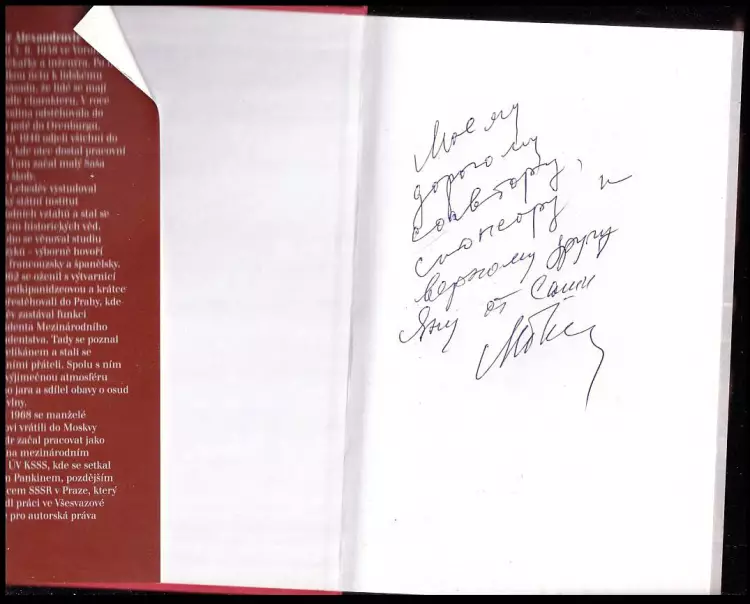 Alexandrovič
1938 ve
a inženýra.
k lidskému
že lidé se mají
charakteru. V roce
odstěhovala do
poté do Orenburgu.
1946 odjeli všichni do
kde otec dostal pracovní
Tam začal malý Saša
školy.
Lebeděv vystudoval
státní institut
vztahů a stal se
historických věd.
se věnoval studiu
výborně hovoří
francouzsky a španělsky.
se oženil s výtvarnicí
a krátce
přestěhovali do Prahy, kde
zastával funkci
Mezinárodního
Tady se poznal
a stali se
přáteli. Spolu s ním
výjimečnou atmosféru
jara a sdílel obavy o osud
1968 se manželé
vrátili do Moskvy
začal pracovat jako
na mezinárodním
ÚV KSSS, kde se setkal
Pankinem, pozdějším
SSSR v Praze, který
práci ve Všesvazové
pro autorská práva
Моему
дорогому
соавтору,
спонсору и
верному другу
Яну от Саши